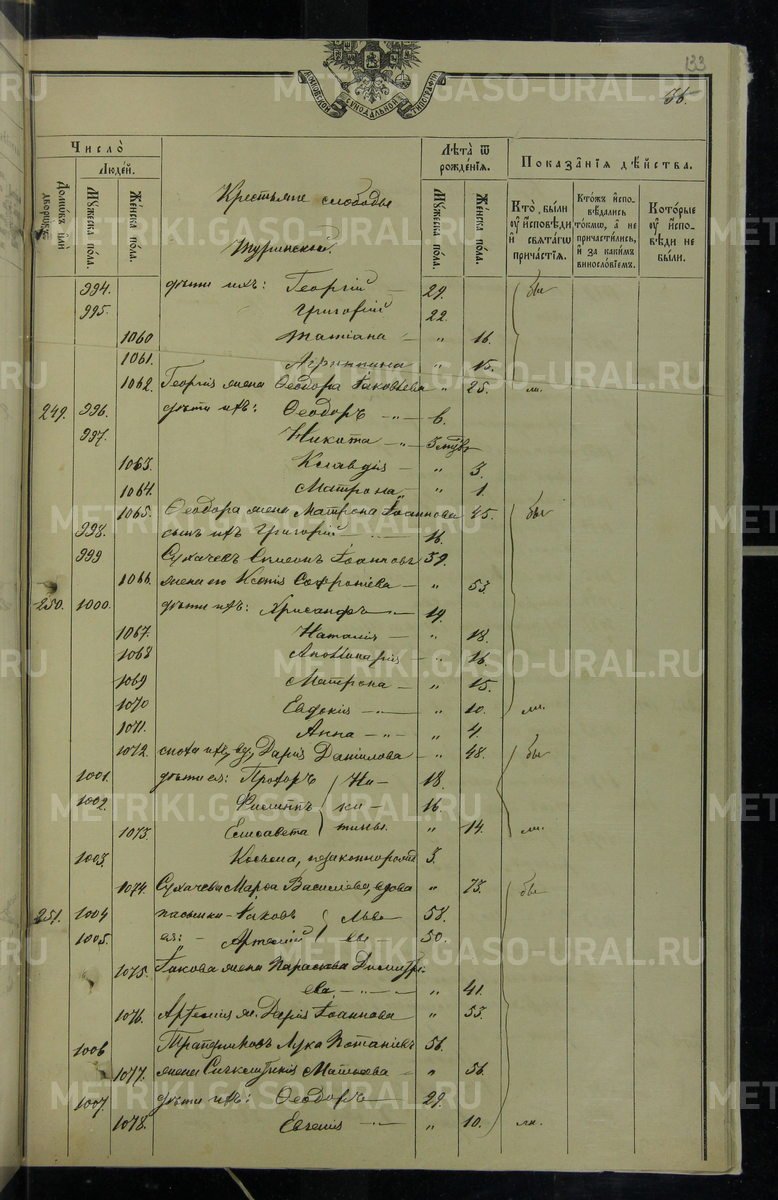 133
36.
МОСКОВСКОЙ СѴНОДАЛЬНОЙ ТИПОГРАФІИ
Число̀
Людей.
Домовъ или дворовъ.
Мꙋжеска пола.
Женска пола.
Крестьяне слободы
Туринской.
Лѣта ѿ рожденїѧ.
Мꙋжеска пола.
Женска пола.
Показанїѧ дѣйства.
Кто были оу исповѣди и свѧтагѡ причастїѧ.
Ктожъ исповѣдались токмѡ, а не причастились, и за какимъ винословїемъ.
Которые оу исповѣди не были.
994. дѣти ихъ: Георгій — 29. бы
995. Григорій 22.
1060 Татіана — „ 16.
1061. Агрипина — „ 15.
1062. Георгія жена Ѳеодора Іаковлева „ 25. ли.
249. 996. дѣти ихъ: Ѳеодоръ — „ — 6.
997. Никита — „ — 3 мѣс.
1063. Клавдія — „ 3.
1064. Матрона „ „ 1.
1065. Ѳеодора жена Матрона Іоаннова 45. бы
998. сынъ ихъ Григорій — 16.
999 Сухачевъ Симеонъ Іоанновъ 59.
1066. жена его Ксенія Софроніева — „ 53.
250. 1000. дѣти ихъ: Хрисанфъ „ — 19.
1067. Наталія — „ 18.
1068 Аполинарія — „ 16.
1069 Матрона — „ 15.
1070 Евдокія — „ — „ 10. ли.
1071. Анна — „ — „ 4.
1072. сноха ихъ, вд. Дарія Даніилова — „ 48. бы
1001. дѣти ея: Прохоръ Ни — 18.
1002. Филиппъ ки — 16.
1073. Елисавета тины. „ 14. ли.
1003. Косьма, незаконнорожд 3.
1074. Сухачева Марѳа Васильева, вдова „ 73. бы
251. 1004 пасынки — Іаковъ Льво 58.
1005. ея: — Артемій вы — 50.
1075. Іакова жена Параскева Димитрі-
ева — „ — „ 41.
1076. Артемія ж. Дарія Іоаннова „ 53.
1006 Трапезниковъ Лука Потапіевъ 56.
1077. жена Матѳеева — „ 56.
1007. дѣти ихъ: Ѳеодоръ — 29.
1078. Евгенія — „ — „ 10. ли.
METRIKI.GASO-URAL.RU